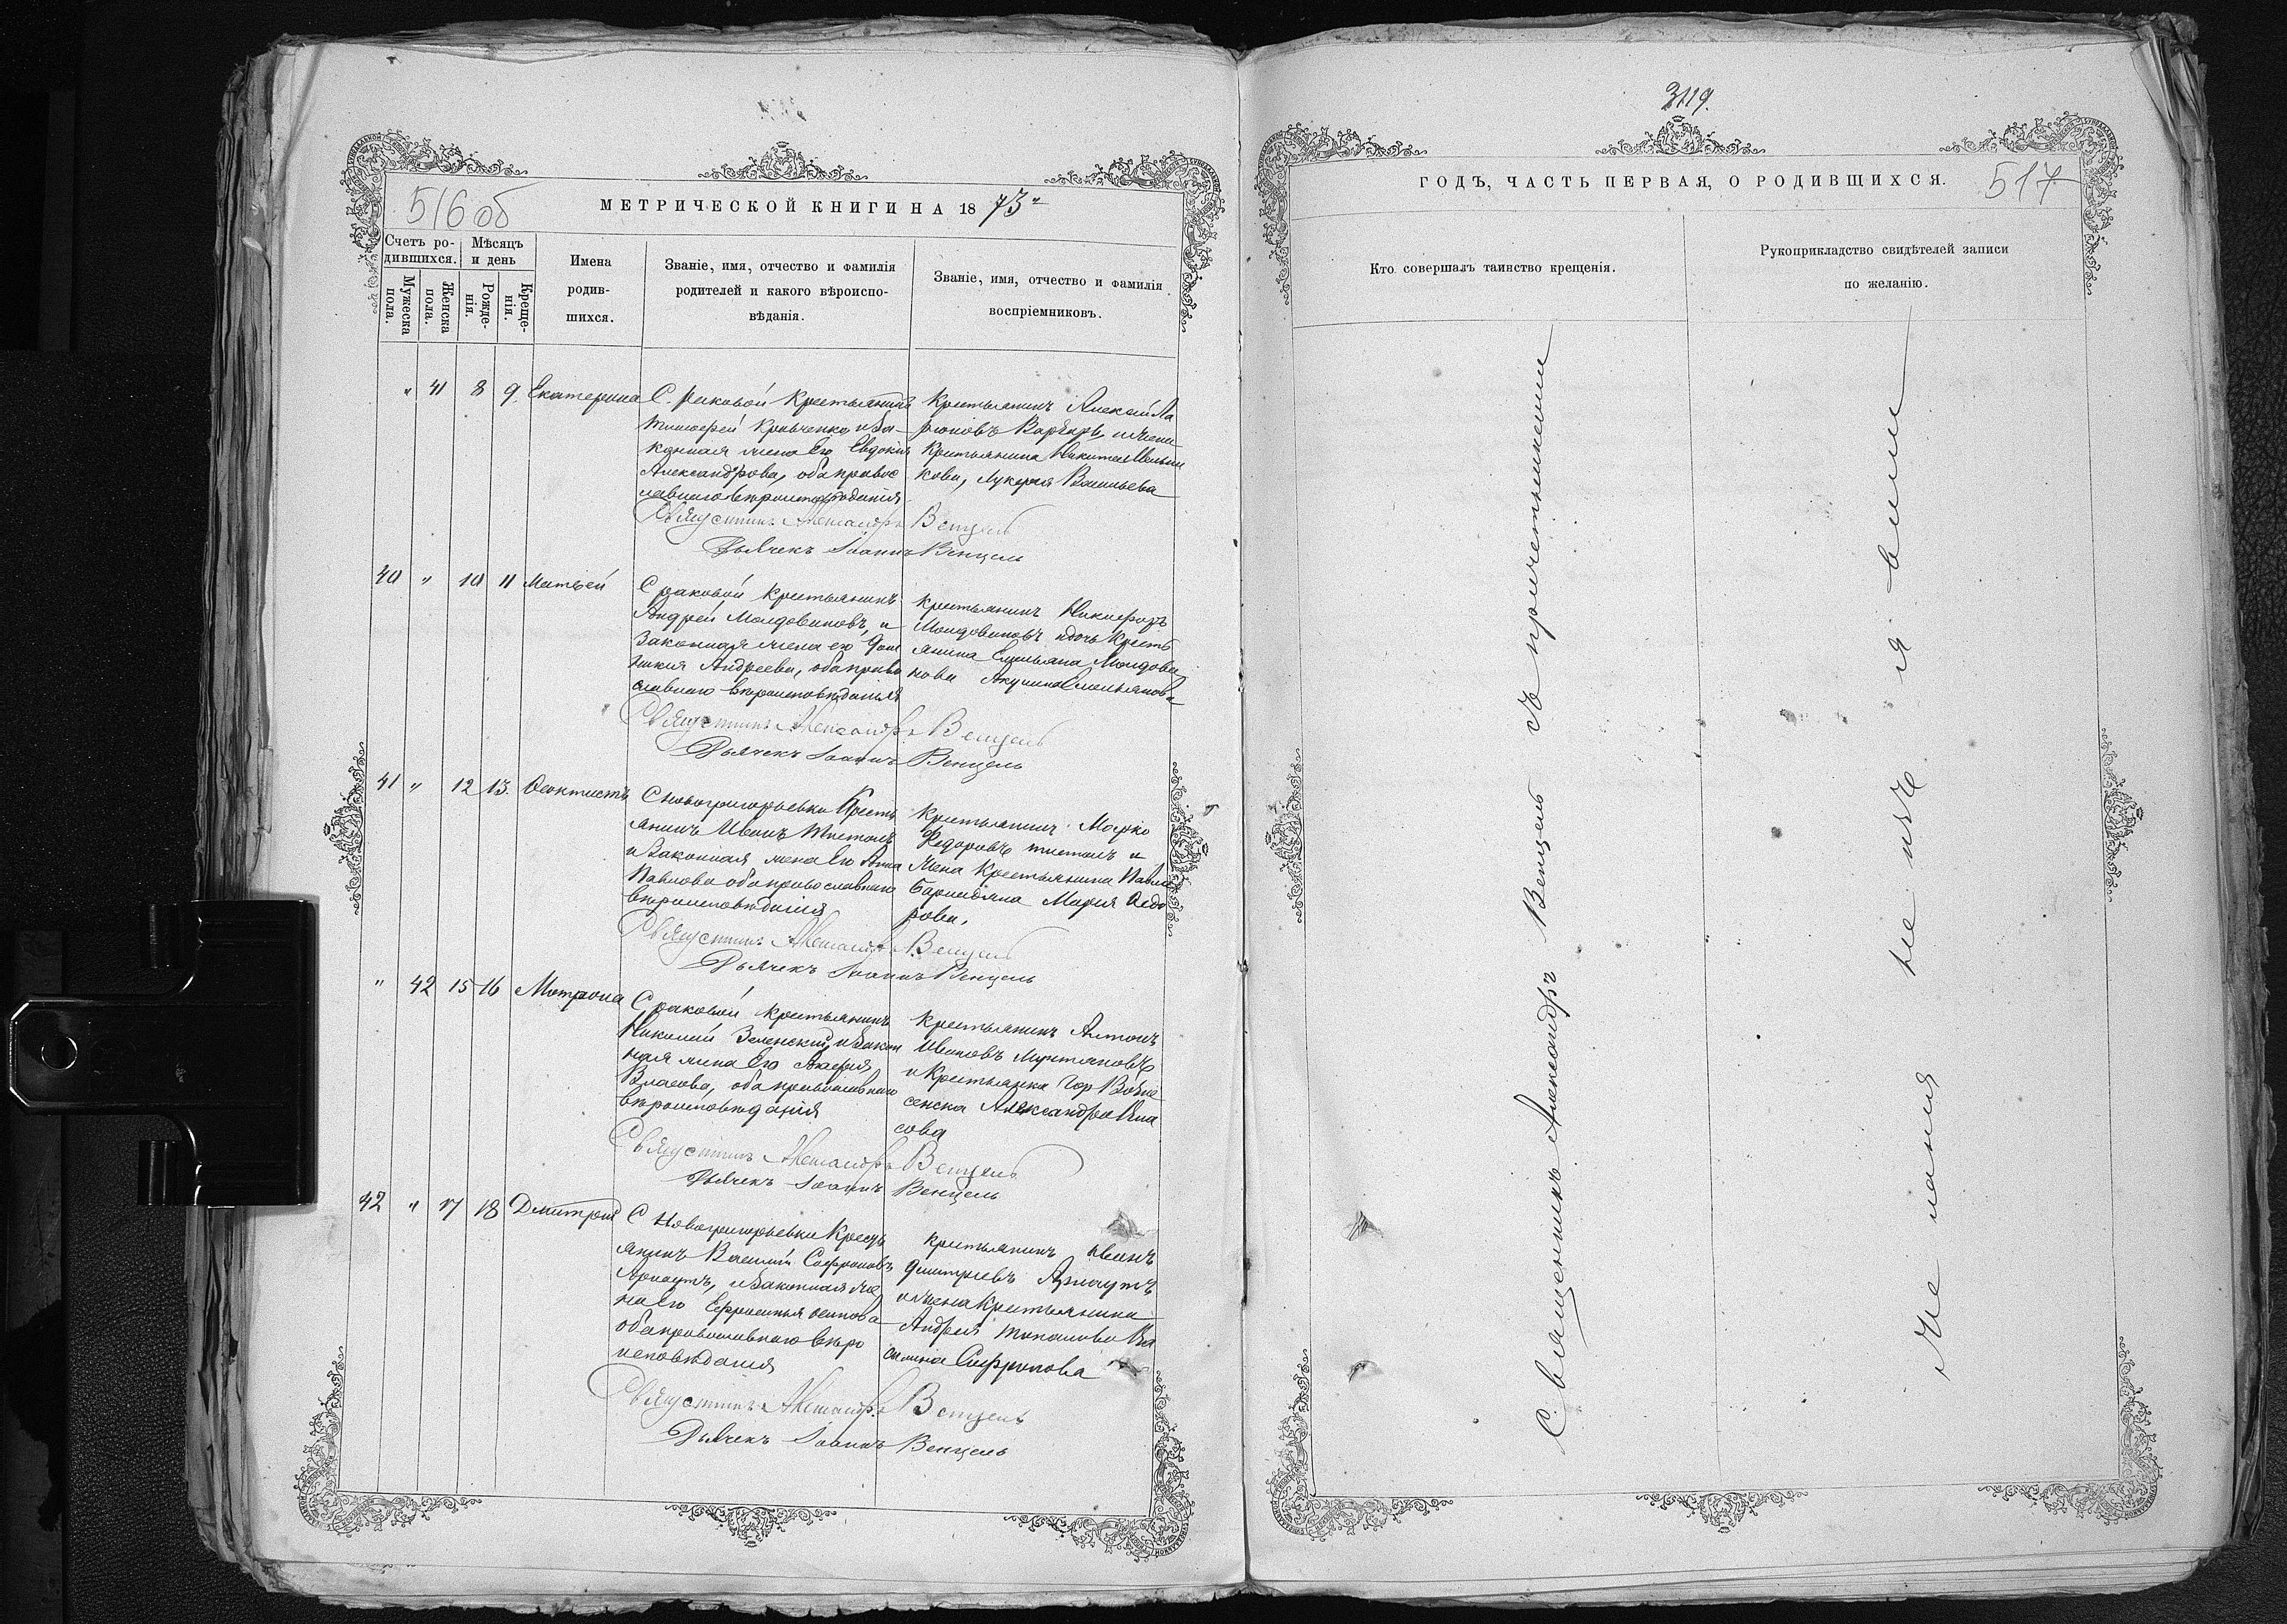 516 об
МЕТРИЧЕСКОЙ КНИГИ НА 1873
Счетъ родившихся.
Мужеска пола.
Женска пола.
Мѣсяцъ и день
Рожденія.
Крещенія.
Имена родившихся.
Званіе, имя, отчество и фамилія
родителей и какого вѣроиспо-
вѣданія.
Званіе, имя, отчество и фамилія
воспріемниковъ.
" 41 8 9. Екатерина
С. Раковой Крестьянинъ
Тимофей Кравченко и за-
конная жена его Евдокия
Александрова, оба правос
лавнаго вѣроисповѣданія
Крестьянинъ Алексей Ла
рионовъ и жена
Крестьянина Никиты
Лукерья Васильева
Священникъ Александръ Венцель
Дьячекъ Іоаннъ Венцель
40 " 10 11 Матвей
С раковой крестьянинъ
Андрей Молдовановъ, и
законная жена его Дом
никия Андреева, оба право
славнаго вѣроисповѣданія
крестьянинъ Никифоръ
Молдовановъ и дочь кресть
янина Емельяна Молдова
нова Акулина Емельянова
Священникъ Александръ Венцель
Дьячекъ Іоаннъ Венцель
41 " 12 13. Феоктистъ
С новогригорьевки Кресть
янинъ Иванъ
и законная жена его Анна
Павлова оба православнаго
вѣроисповѣданія
Крестьянинъ Марко
Федоровъ и
жена Крестьянина Павла
Мария Федо
рова,
Священникъ Александръ Венцель
Дьячекъ Іоаннъ Венцель
" 42 15 16 Матрона
С раковой крестьянинъ
Николай Зеленский, и закон
ная жена его
Власова, оба православнаго
вѣроисповѣданія
крестьянинъ Антонъ
Ивановъ Мунтяновъ
и Крестьянка Гор Возне
сенска Александра Вла
сова
Священникъ Александръ Венцель
Дьячекъ Іоаннъ Венцель
42 " 17 18 Дмитрий
С Новогригорьевки Крест
янинъ Василий Софроновъ
Арнаутъ, и законная же
на его Ефросинья Осипова
оба православнаго вѣро
исповѣданія
крестьянинъ Иванъ
Дмитриевъ Арнаутъ
и жена крестьянина
Андрея Ва
силина Софронова
Священникъ Александръ Венцель
Дьячекъ Іоаннъ Венцель
3119.
ГОДЪ, ЧАСТЬ ПЕРВАЯ, О РОДИВШИХСЯ.
517
Кто совершалъ таинство крещенія.
Рукоприкладство свидѣтелей записи
по желанію.
Священникъ Александръ Венцель съ причетниками
не изъявили